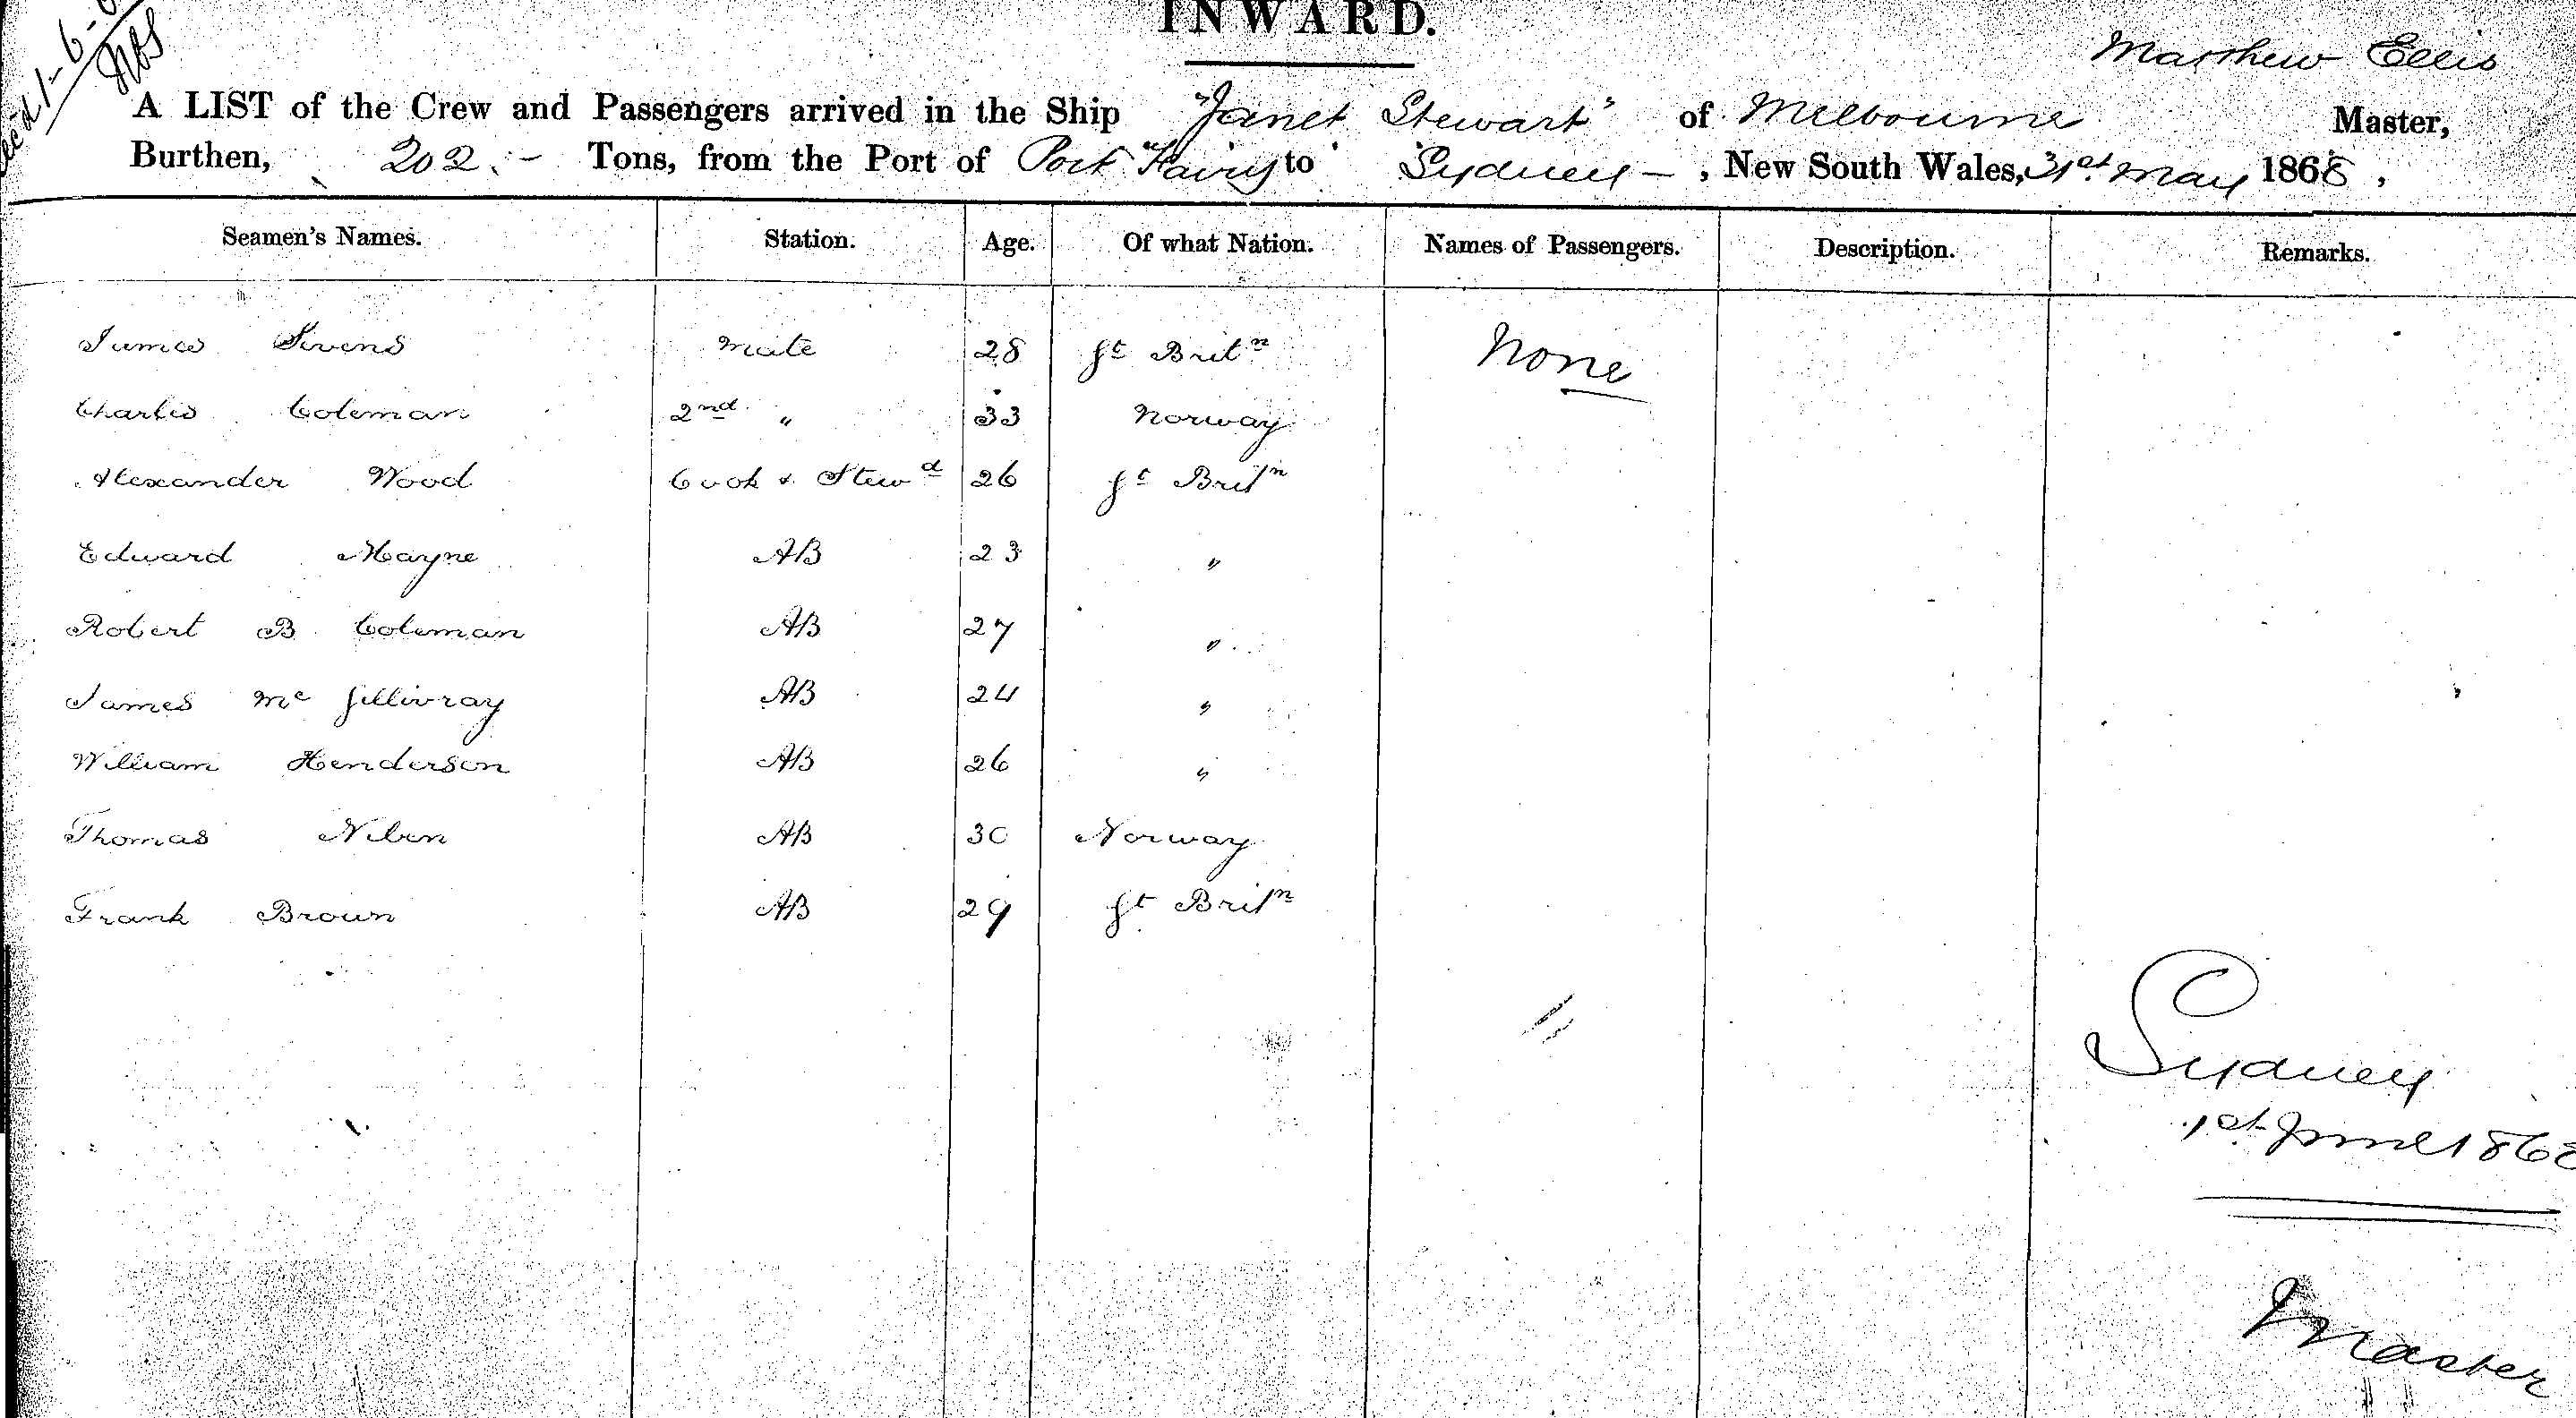 INWARD.
Matthew Ellis
A LIST of the Crew and Passengers arrived in the Ship "Janet Stewart" of Melbourne Master,
Burthen, 202.- Tons, from the Port of Port Fairy to Sydney - , New South Wales, 31st May 1868,
Seamen's Names. Station. Age. Of what Nation. Names of Passengers. Description. Remarks.
James mate 28 Gt Britn None
Charles Coleman 2nd " 33 Norway
Alexander Wood Cook & Stewd 26 Gt Britn
Edward Mayne AB 23 "
Robert B Coleman AB 27 "
James Mc Gillivray AB 24 "
William Henderson AB 26 "
Thomas AB 30 Norway
Frank Brown AB 29 Gt Britn
Sydney
1st June 1868
Master